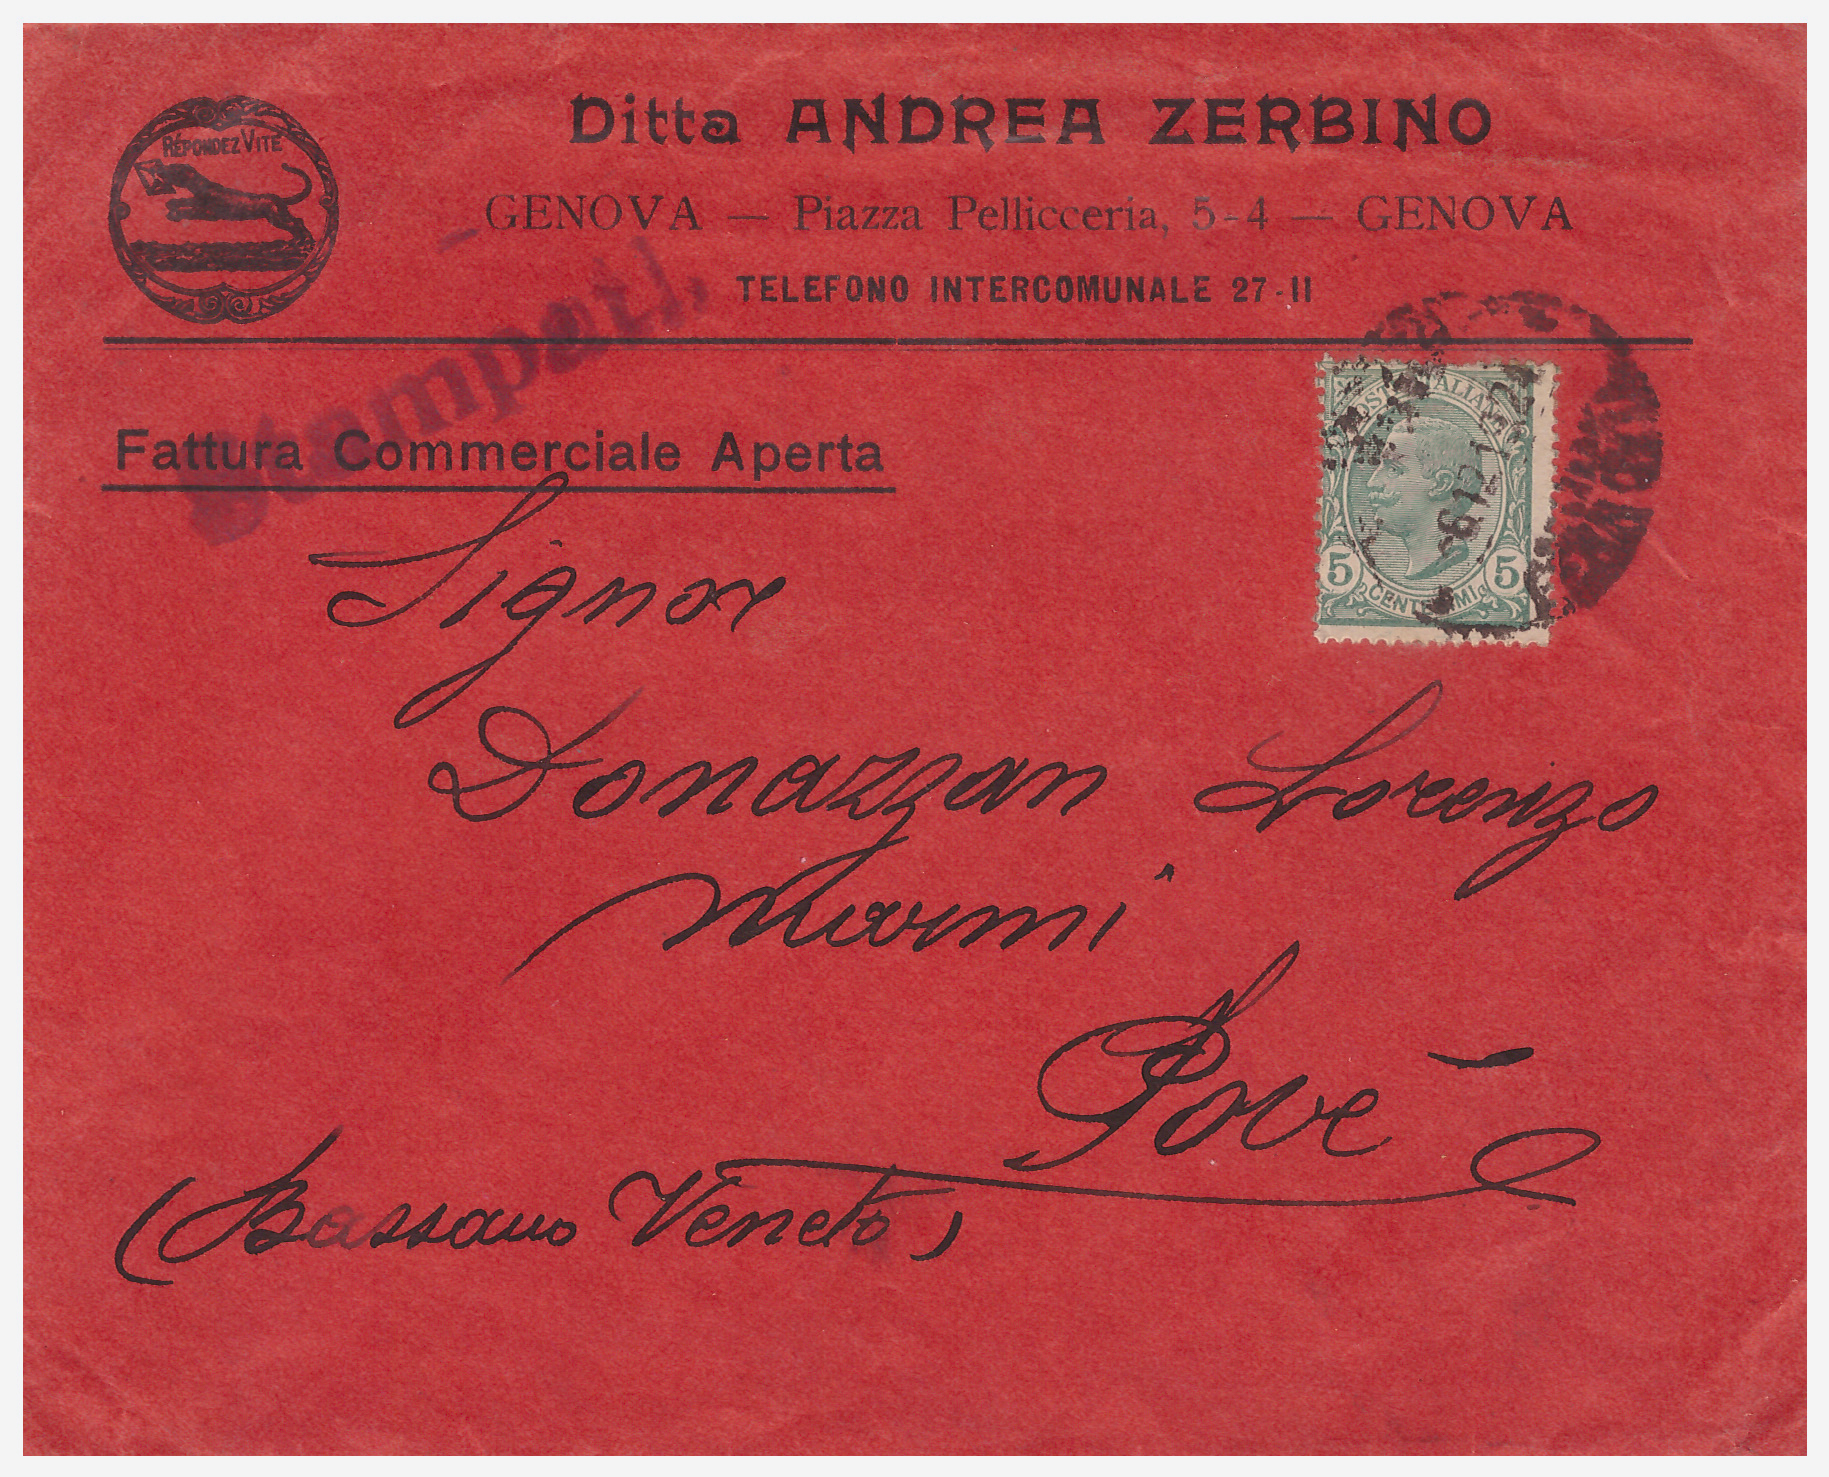 RÉPONDEZ VITE
Ditta ANDREA ZERBINO
GENOVA — Piazza Pellicceria, 5-4 — GENOVA
TELEFONO INTERCOMUNALE 27-11
Stampati.
Fattura Commerciale Aperta
POSTE ITALIANE
5 5
CENTESIMI
Signor
Donazzan Lorenzo
Marmi
Pove
(Bassano Veneto)